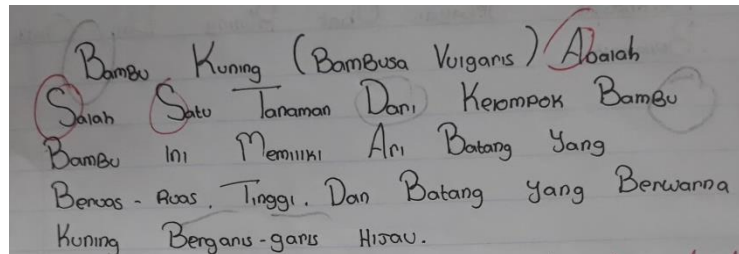 Bambu Kuning (Bambusa Vulgaris) Adalah
Salah Satu Tanaman Dari Kelompok Bambu
Bambu ini Memiliki Ari Batang Yang
Beruas - Ruas. Tinggi. Dan Batang yang Berwarna
Kuning Bergaris-garis Hijau.